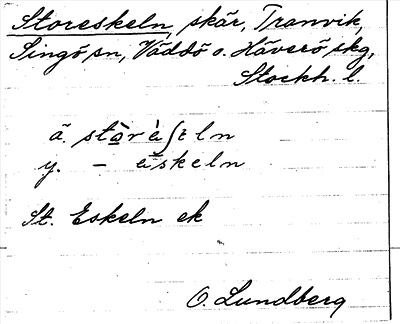 Storeskeln, skär, Tranvik,
Singö sn, Väddö o. Häverö skg,
Stockh. l.
ä. stòrèʃeln
y. – èskeln
St. Eskeln ek
O. Lundberg